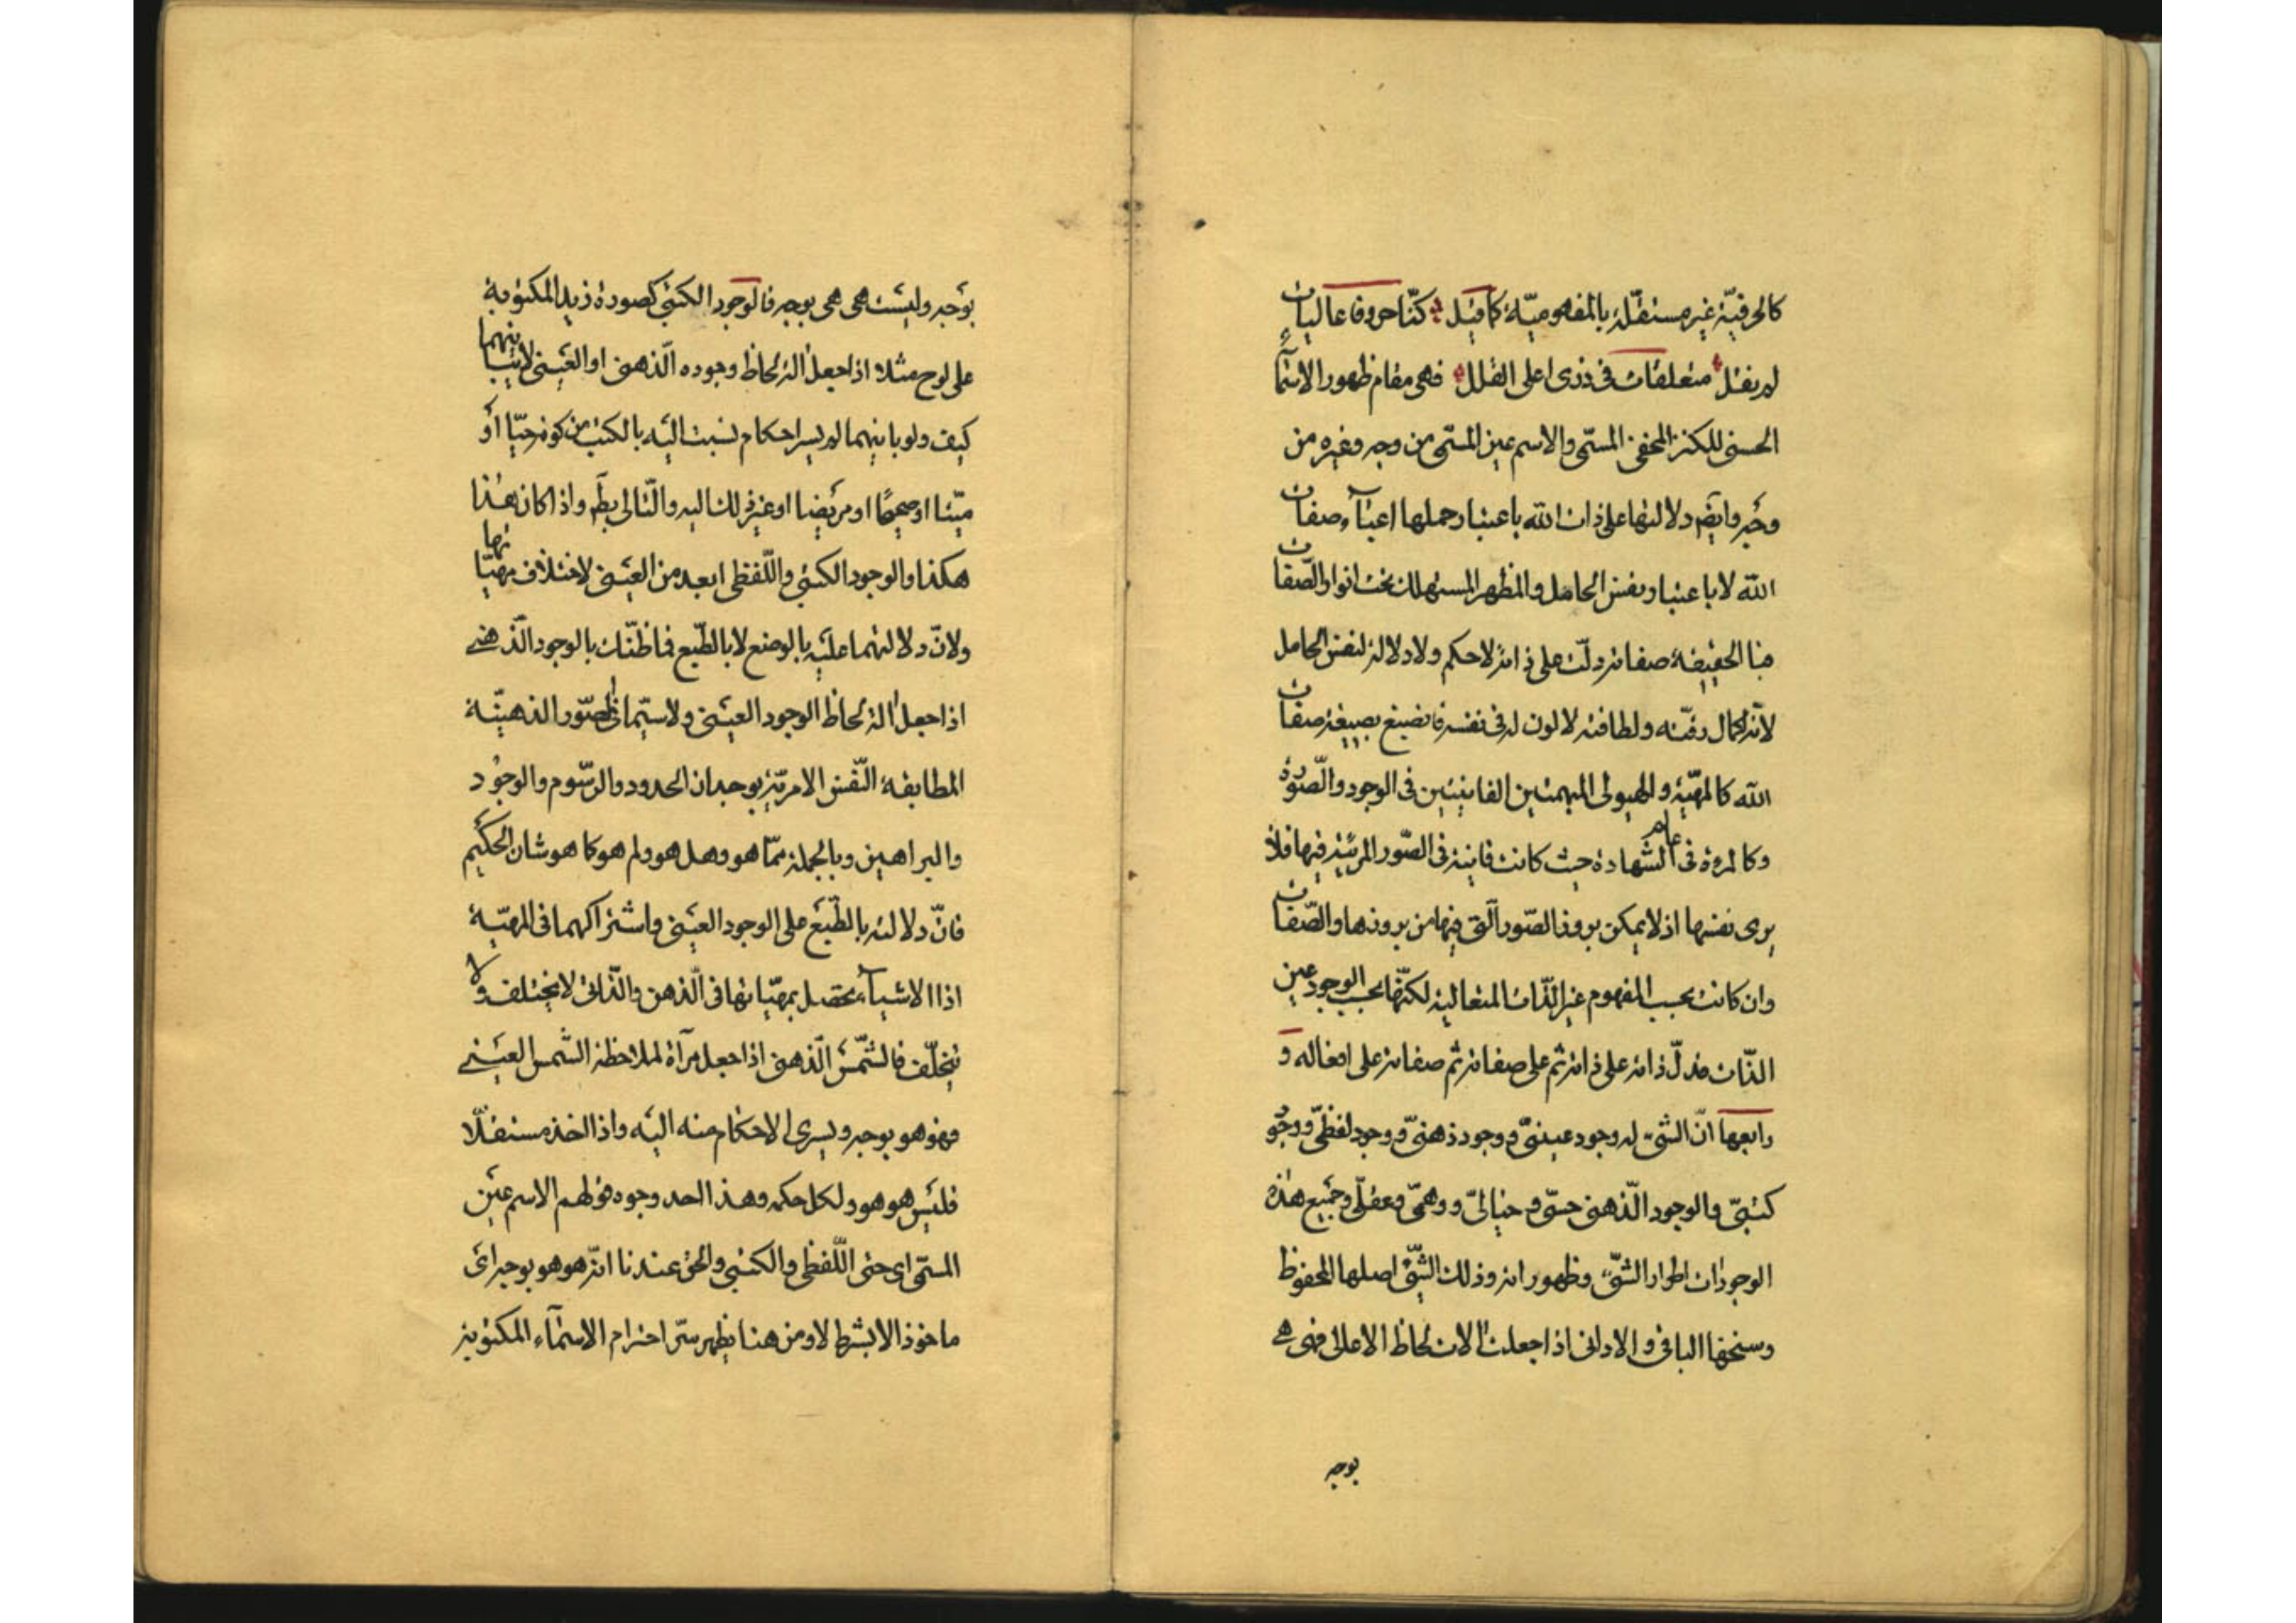 كالحرفيّة غير مستقلّة بالمفهوميّة كما قيل كنّا حروفا عاليات
لم نقل متعلقات فى ذرى اعلى القلل فهى مقام ظهور الاسمآء
الحسنى للكنز المخفى المسمّى والاسم عين المسمّى من وجه وغيره من
وجه وايضا دلالتها على ذات الله باعتبار حملها اعبآء صفات
الله لا باعتبار نفس الحامل والمظهر المستهلك تحت انوار الصّفات
هنا الحقيقة صفاته دلّت على ذاته لا حكم ولا دلالة لنفس الحامل
لانّه لكمال رقّته ولطافته لا لون له فى نفسه فانصبغ بصبغة صفات
الله كالمهيّة والهيولى المبهمتين الفانيتين فى الوجود والصّورة
وكالمرءة فى عالم الشّهادة حيث كانت فانية فى الصّور المرئيّة فيها فلا
يرى نفسها اذ لا يمكن بروز الصّور الّتى فيها من بروزها والصّفات
وان كانت بحسب المفهوم غير الذّات المتعالية لكنّها بحسب الوجود عين
الذّات فدلّ ذاته على ذاته ثم على صفاته ثم صفاته على افعاله و
رابعها انّ الشّىء له وجود عينىّ و وجود ذهنىّ و وجود لفظىّ و وجود
كتبىّ والوجود الّذهنى حسّى و خيالىّ و وهمىّ وعقلىّ وجميع هذه
الوجودات اطوار الشّىء وظهوراته وذلك الشّىء اصلها المحفوظ
وسنخها الباقى والادانى اذا جعلت الات لحاظ الاعالى فهى هى
بوجه
بوجه وليست هى هى بوجه فالوجود الكتبى كصورة زيد المكتوبة
على لوح مثلا اذا جعل الة لحاظ وجوده الّذهنى او العينى لا يباينهما
كيف ولو باينهما لم يسر احكام نسبت اليه بالكتب من كونه حيّا او
ميّتا او صحيحًا او مريضا او غير ذلك اليه والتّالى بط واذا كان هذا
هكذا والوجود الكتبى واللّفظى ابعد من العينى لاختلاف مهيّاتها
ولانّ دلالتهما عليه بالوضع لا بالطّبع فما ظنّك بالوجود الّذهنى
اذا جعل الة لحاظ الوجود العينى ولا سيّما فى الصّور الذهنيّة
المطابقة النّفس الامريّة بوجدان الحدود والرسّوم والوجود
والبراهين وبالجملة ممّا هو وهل هو ولم هو كما هو شان الحكيم
فانّ دلالته بالطّبع على الوجود العينى واشتراكهما فى المهيّة
اذا الاشيآء تحصل بمهيّاتها فى الّذهن والّذاتى لا يختلف ولا
يتخلّف فالشّمس الّذهنى اذا جعل مرآة لملاحظة الشّمس العينى
فهو هو بوجه ويسرى الاحكام منه اليه واذا اتخذ مستقلّا
فليس هو هو ولكل حكمه وهذا احد وجوه قولهم الاسم عين
المسمّى اى حتى اللّفظى والكتبى والحق عندنا انّه هو هو بوجه اى
ماخوذا لا بشرط لا ومن هنا يظهر سرّ احترام الاسمآء المكتوبة